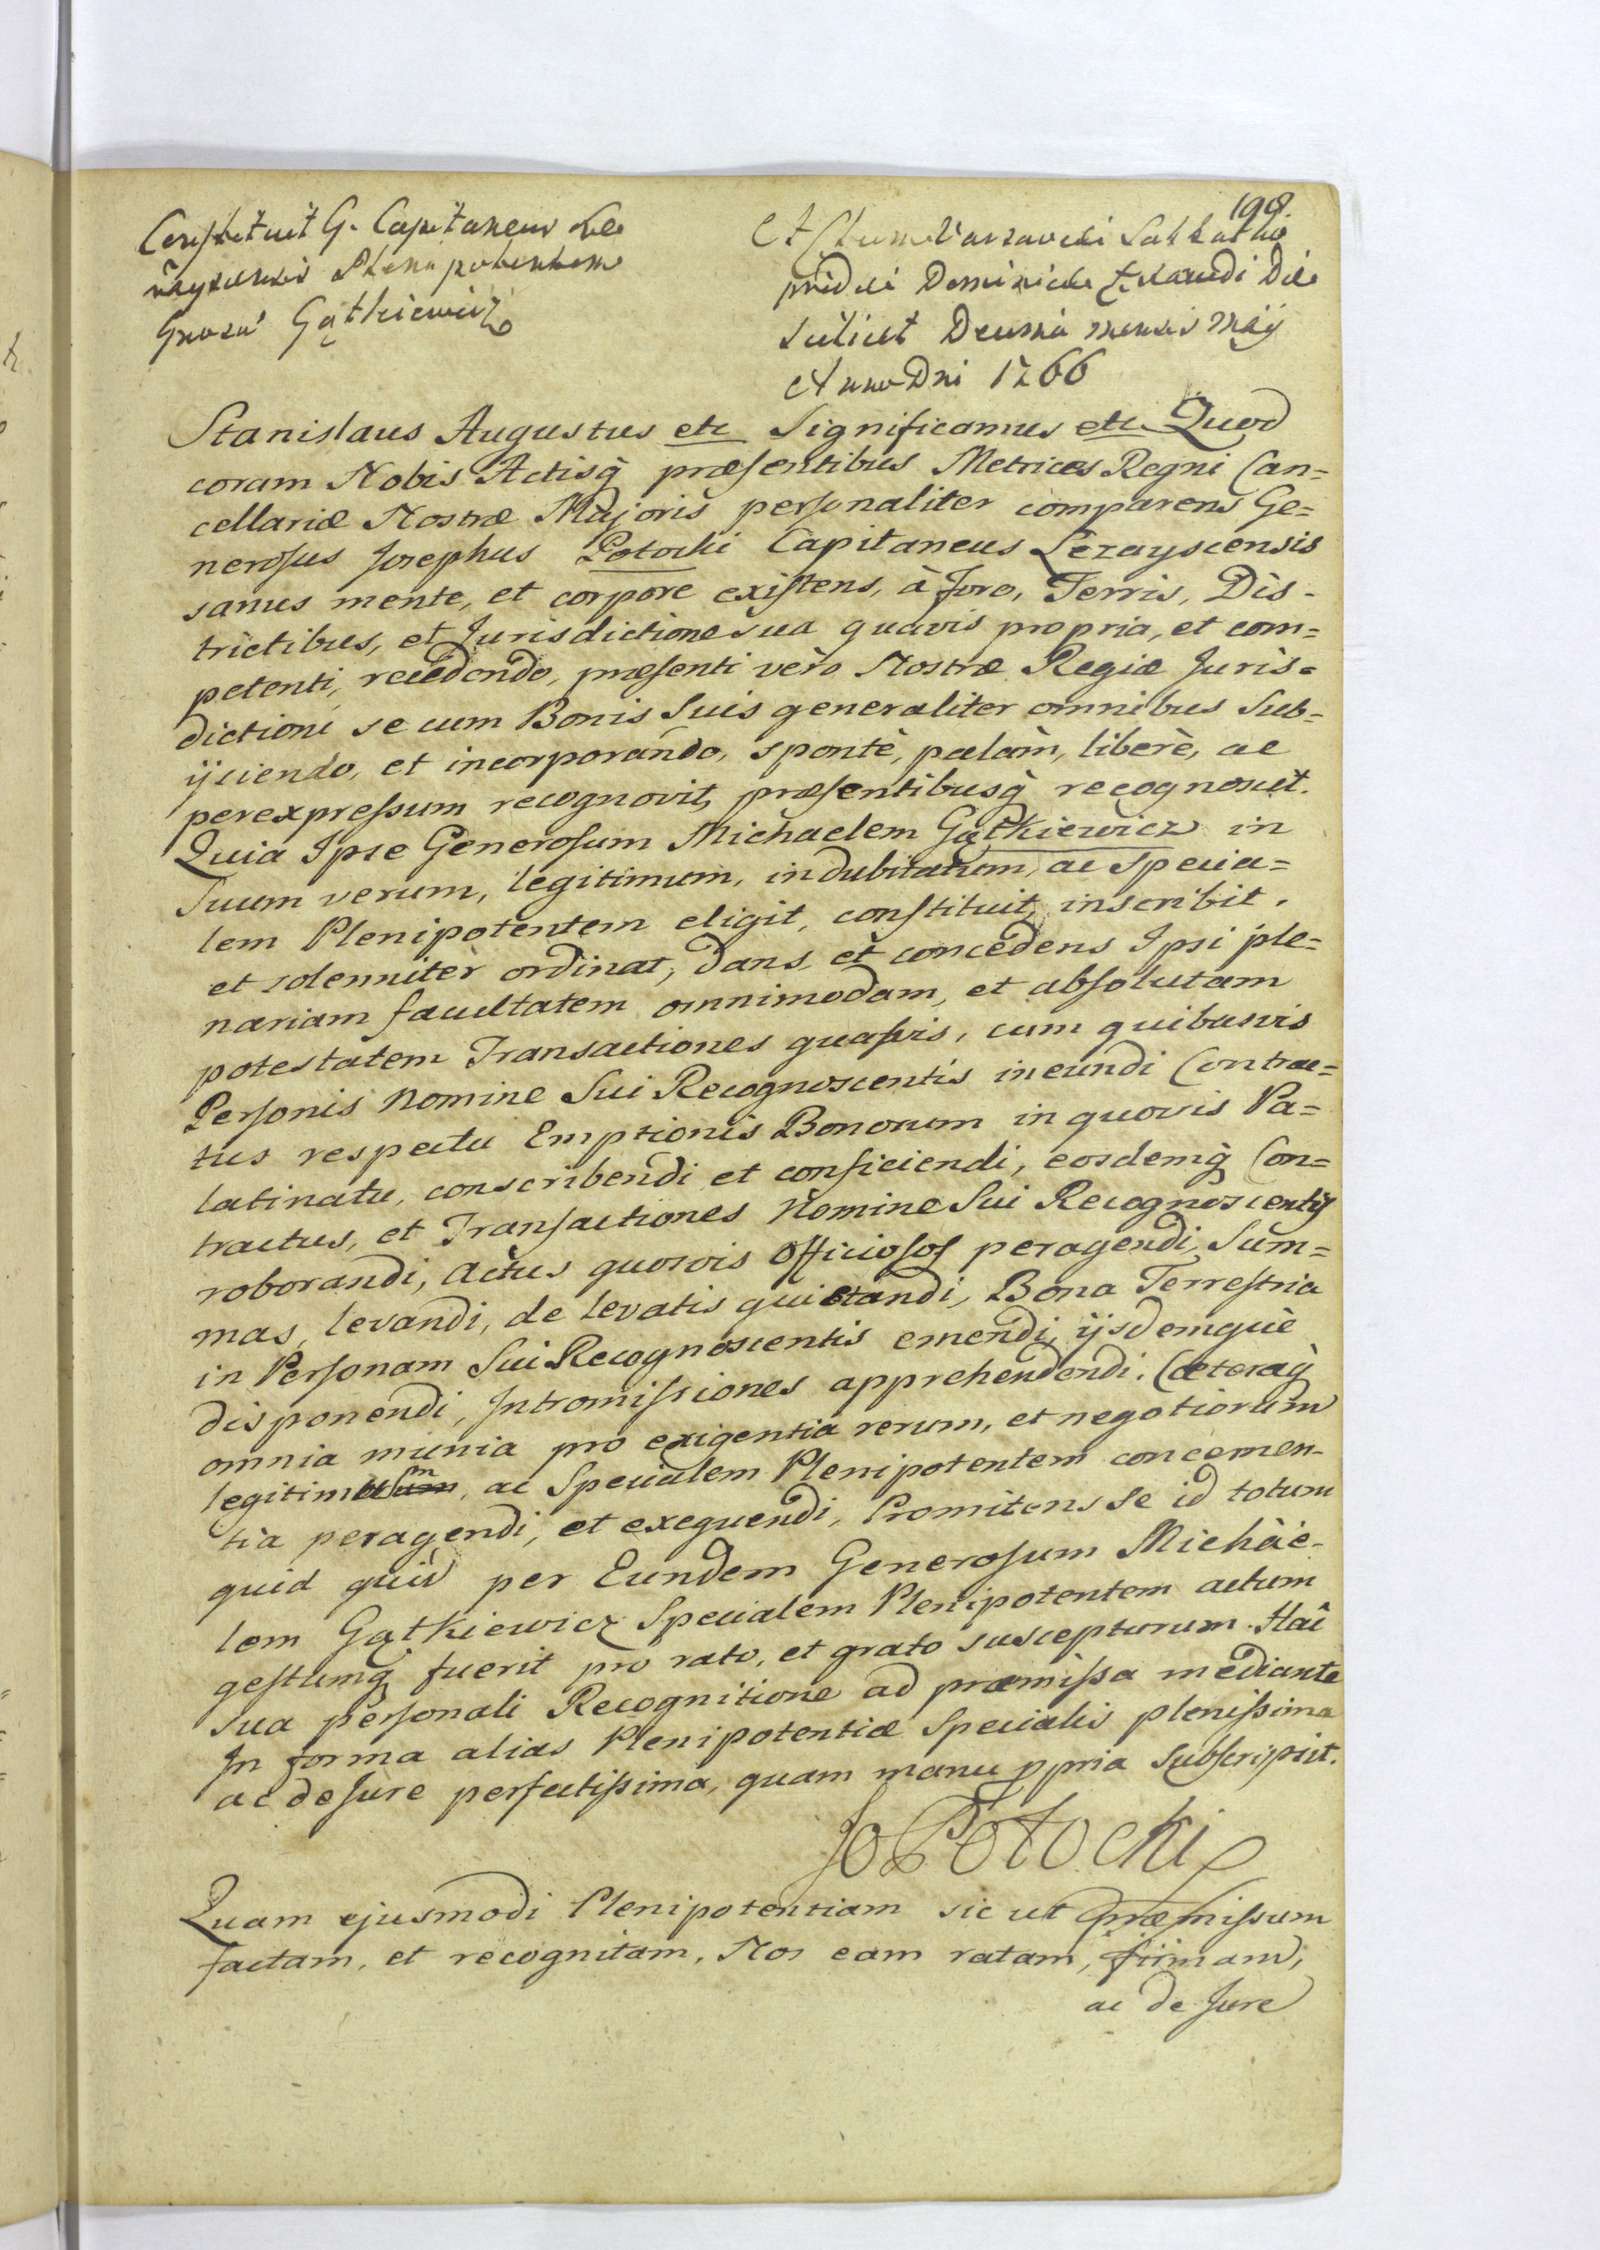 198.
Constituit G. Capitaneus Le
rayscensis Plenipotentem
Gnosu' Gątkiewicz
Actum Varsaviæ Sabbatho
pridie Dominicæ Exaudi Die
scilicet Decima mensis Maij
Anno Dni 1766
Stanislaus Augustus etc Significamus etc Quod
coram Nobis Actisq̀ præsentibus Metrices Regni Can=
cellariæ Nostræ Majoris personaliter comparens Ge=
nerosus Josephus Potocki Capitaneus Lezayscensis
sanus mente, et corpore existens, à Foro, Terris, Dis-
trictibus, et Jurisdictione sua quavis propria, et com=
petenti, recedendo, præsenti vèro Nostræ Regiæ Juris=
dictioni se cum Bonis Suis generaliter omnibus Sub=
ijciendo, et incorporando, spontè, palàm, liberè, ac
perexpressum recognovit, præsentibusq̀ recognoscit.
Quia Ipse Generosum Michaelem Gątkiewicz in
Suum verum, legitimum, indubitatum, ac specia=
lem Plenipotentem eligit, constituit, inscribit,
et solenniter ordinat, dans, et concedens Ipsi ple=
nariam facultatem omnimodam, et absolutam
potestatem Transactiones quasvis, cum quibusvis
Personis Nomine Sui Recognoscentis ineundi Contrac=
tus respectu Emptionis Bonorum in quovis Pa=
latinatu, conscribendi et conficiendi, eosdemq̀ Con=
tractus, et Transactiones Nomine Sui Recognoscentis
roborandi, Actus quosvis Officiosos peragendi, Sum=
mas, levandi, de levatis quietandi, Bona Terrestria
in Personam Sui Recognoscentis emendi, ijsdemquè
disponendi, Intromissiones apprehendendi. Cæteraq̀
omnia munia pro exigentia rerum, et negotiorum
legitimum, ac Specialem Plenipotentem concernen-
tia peragendi, et exequendi, Promitens se id totum
quid quid per Eundem Generosum Michàè-
lem Gątkiewicz Specialem Plenipotentem actum
gestumq̀ fuerit pro rato, et grato suscepturum. Hac
sua personali Recognitione ad præmissa mediante
In forma alias Plenipotentiæ Specialis plenissima
ac de Jure perfectissima, quam manu ppria Subscripsit.
Jo Potocki
Quam ejusmodi Plenipotentiam sic ut præmissum
factam, et recognitam, Nos eam ratam, firmam,
ac de Jure